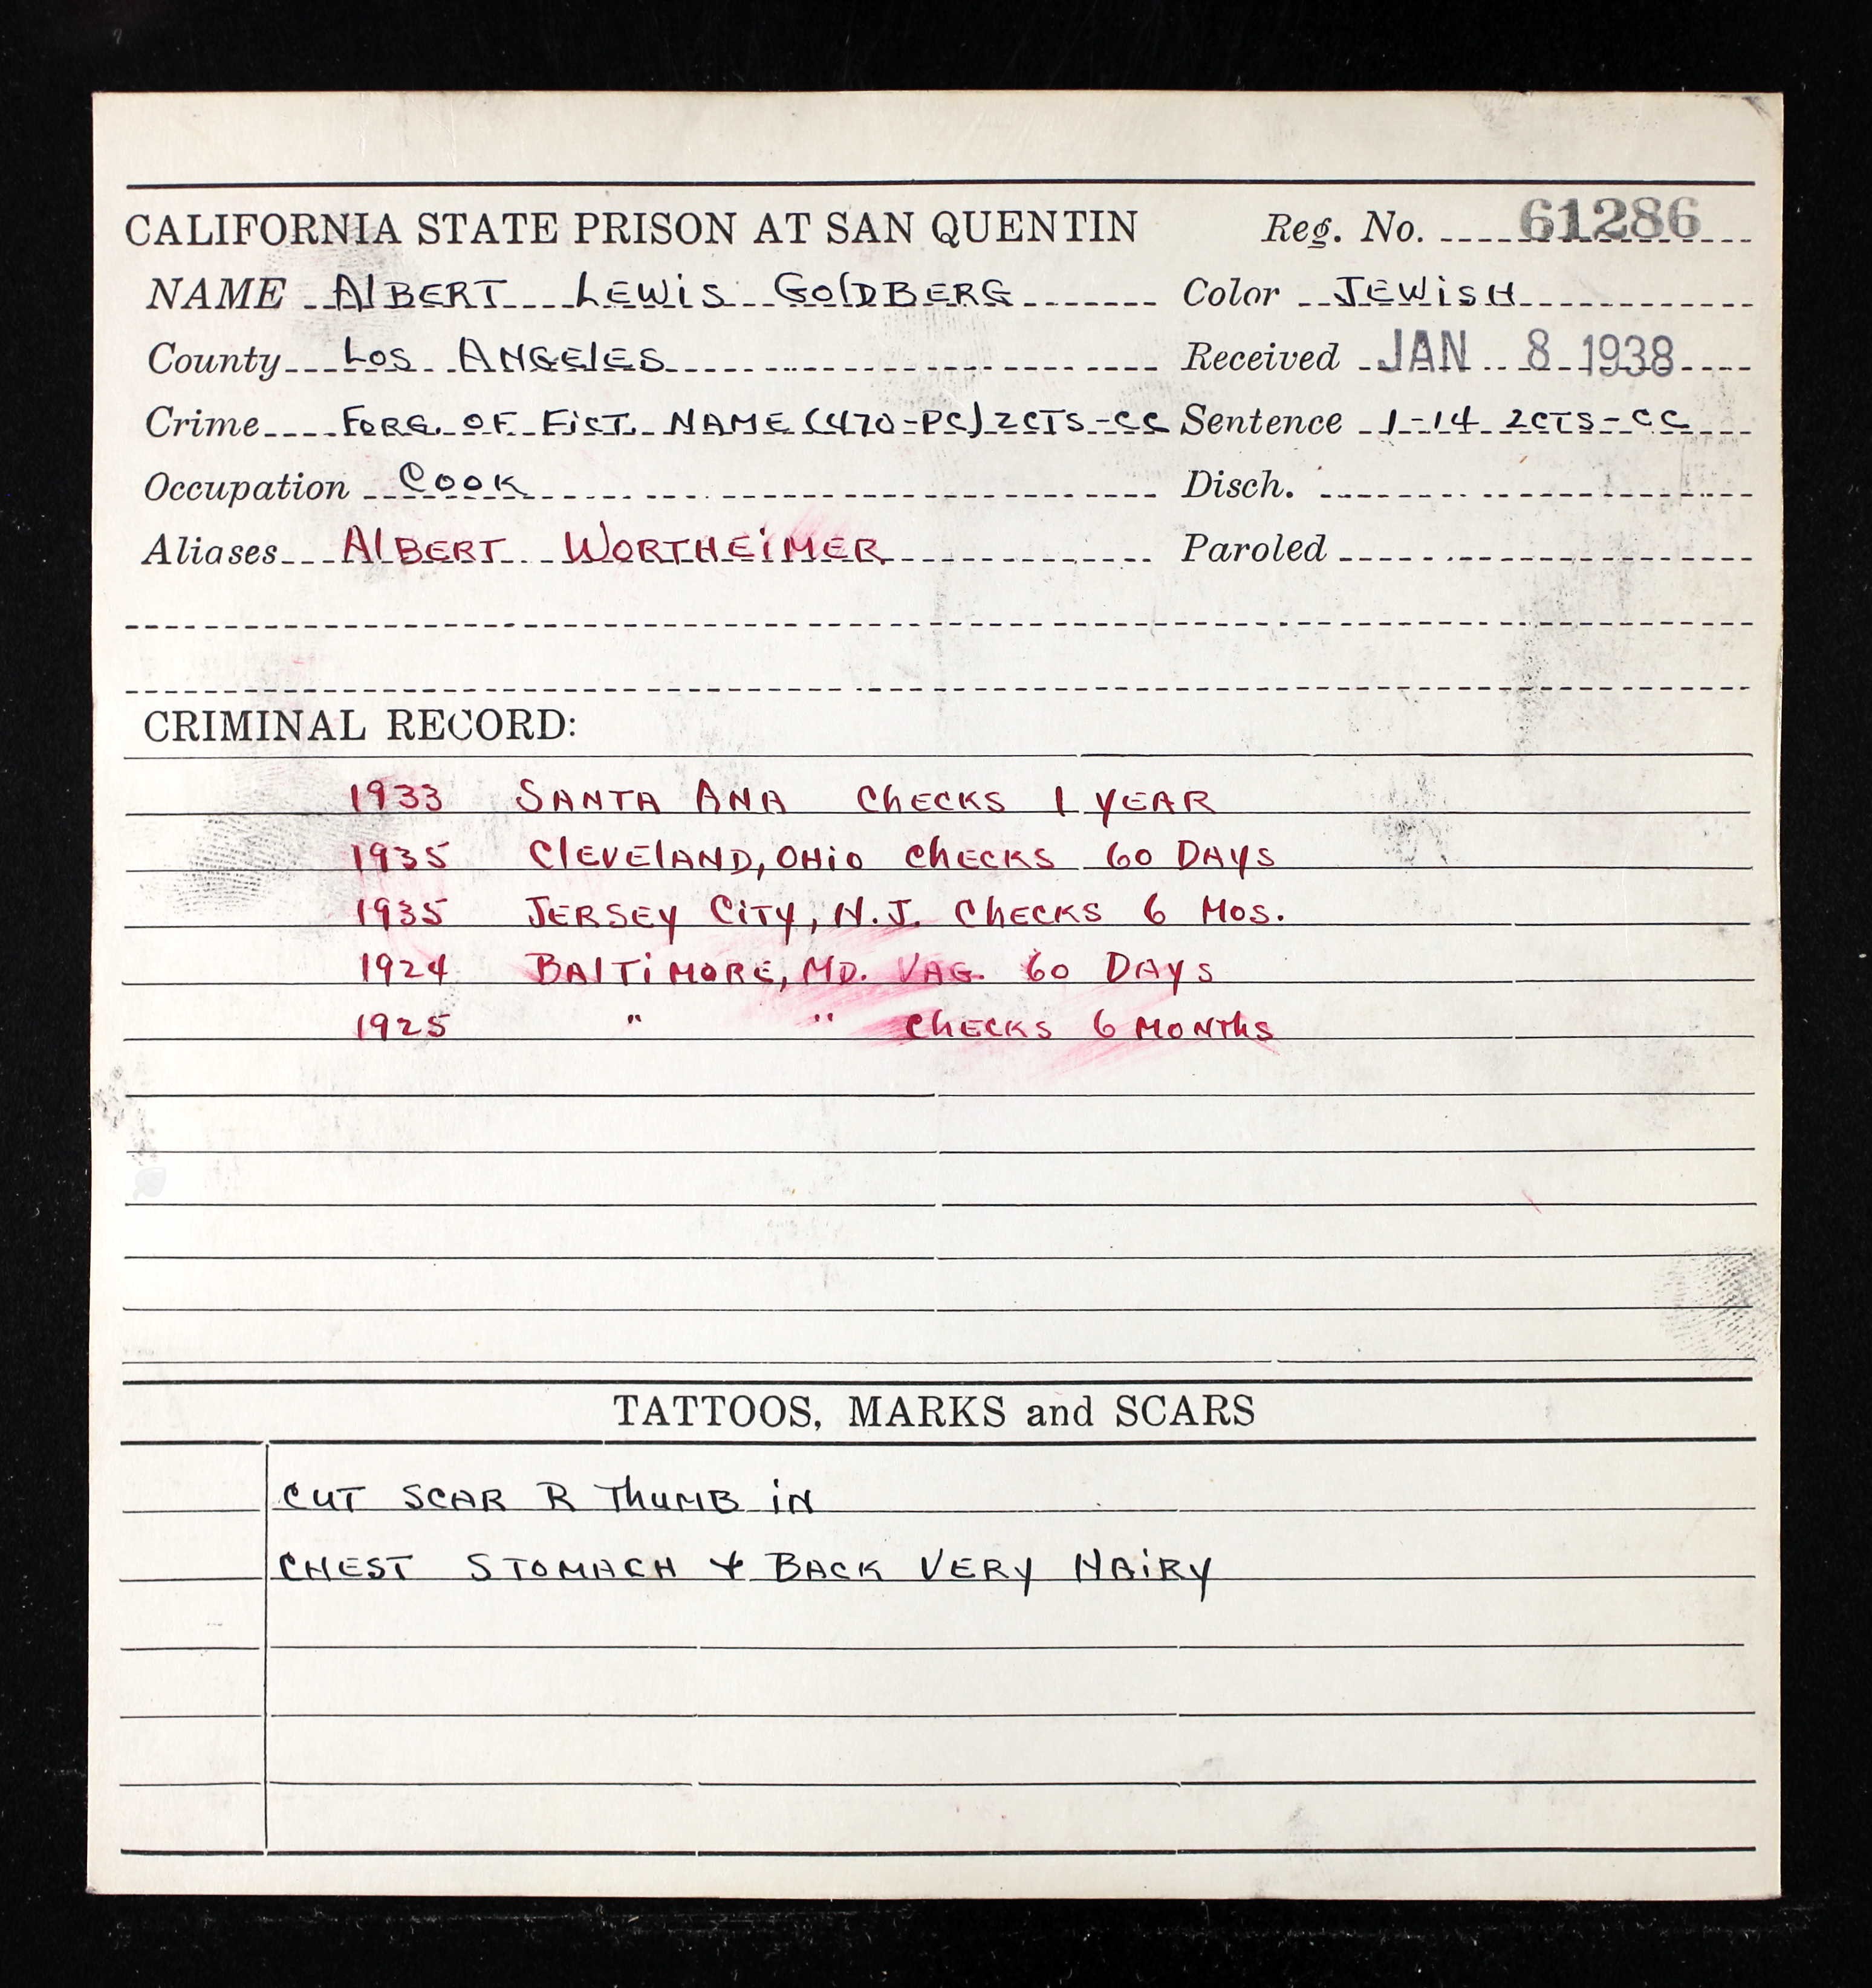 CALIFORNIA STATE PRISON AT SAN QUENTIN Reg. No. 61286
NAME ALBERT LEWIS GOLDBERG Color JEWISH
County LOS ANGELES Received JAN 8 1938
Crime FORG. OF FICT. NAME (470-PC) 2CTS-CC Sentence 1-14 2CTS-CC
Occupation COOK Disch.
Aliases ALBERT WORTHEIMER Paroled
CRIMINAL RECORD:
1933 SANTA ANA CHECKS 1 YEAR
1935 CLEVELAND, OHIO CHECKS 60 DAYS
1935 JERSEY CITY, N.J. CHECKS 6 MOS.
1924 BALTIMORE, MD. VAG. 60 DAYS
1925 " " CHECKS 6 MONTHS
TATTOOS, MARKS and SCARS
CUT SCAR R THUMB IN
CHEST STOMACH & BACK VERY HAIRY